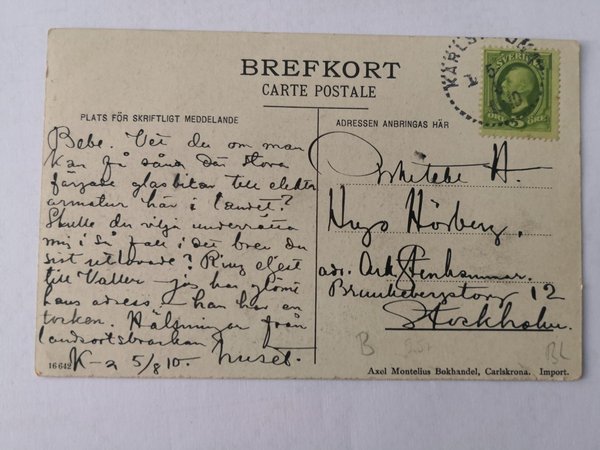 BREFKORT
CARTE POSTALE
PLATS FÖR SKRIFTLIGT MEDDELANDE
Bebe. Vet du om man
kan få såna där stora
färgade glasbitar till elektr
armatur här i landet?
Skulle du vilja underrätta
mig i så fall i det brev du
sist utlovade? Ring eljest
till Waller - jag har glömt
hans adress - han har en
Hälsningar från
K-a 5/8 10.
16 642
ADRESSEN ANBRINGAS HÄR
SVERIGE
5 ÖRE
KARLSKRONA
H.
Hugo Hörberg.
adr. Ark. Stenhammar.
Brunkebergstorg 12
Stockholm.
B
BL
Axel Montelius Bokhandel, Carlskrona. Import.